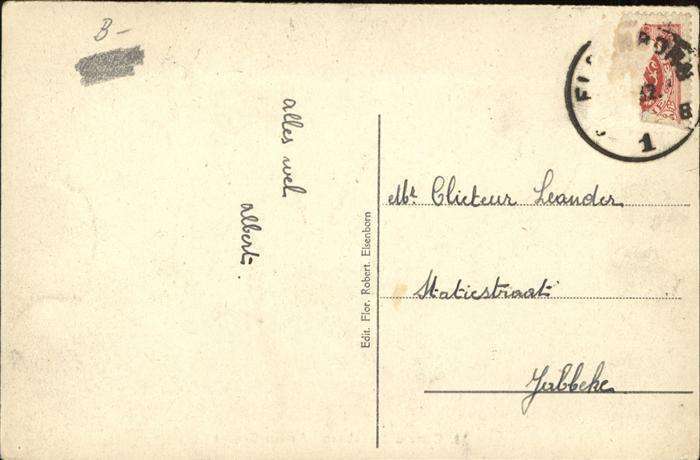 B-
alles wel
albert.
Edit. Flor. Robert. Elsenborn
Mr Clicteur Leander
Statiestraat
Jabbeke
1
B